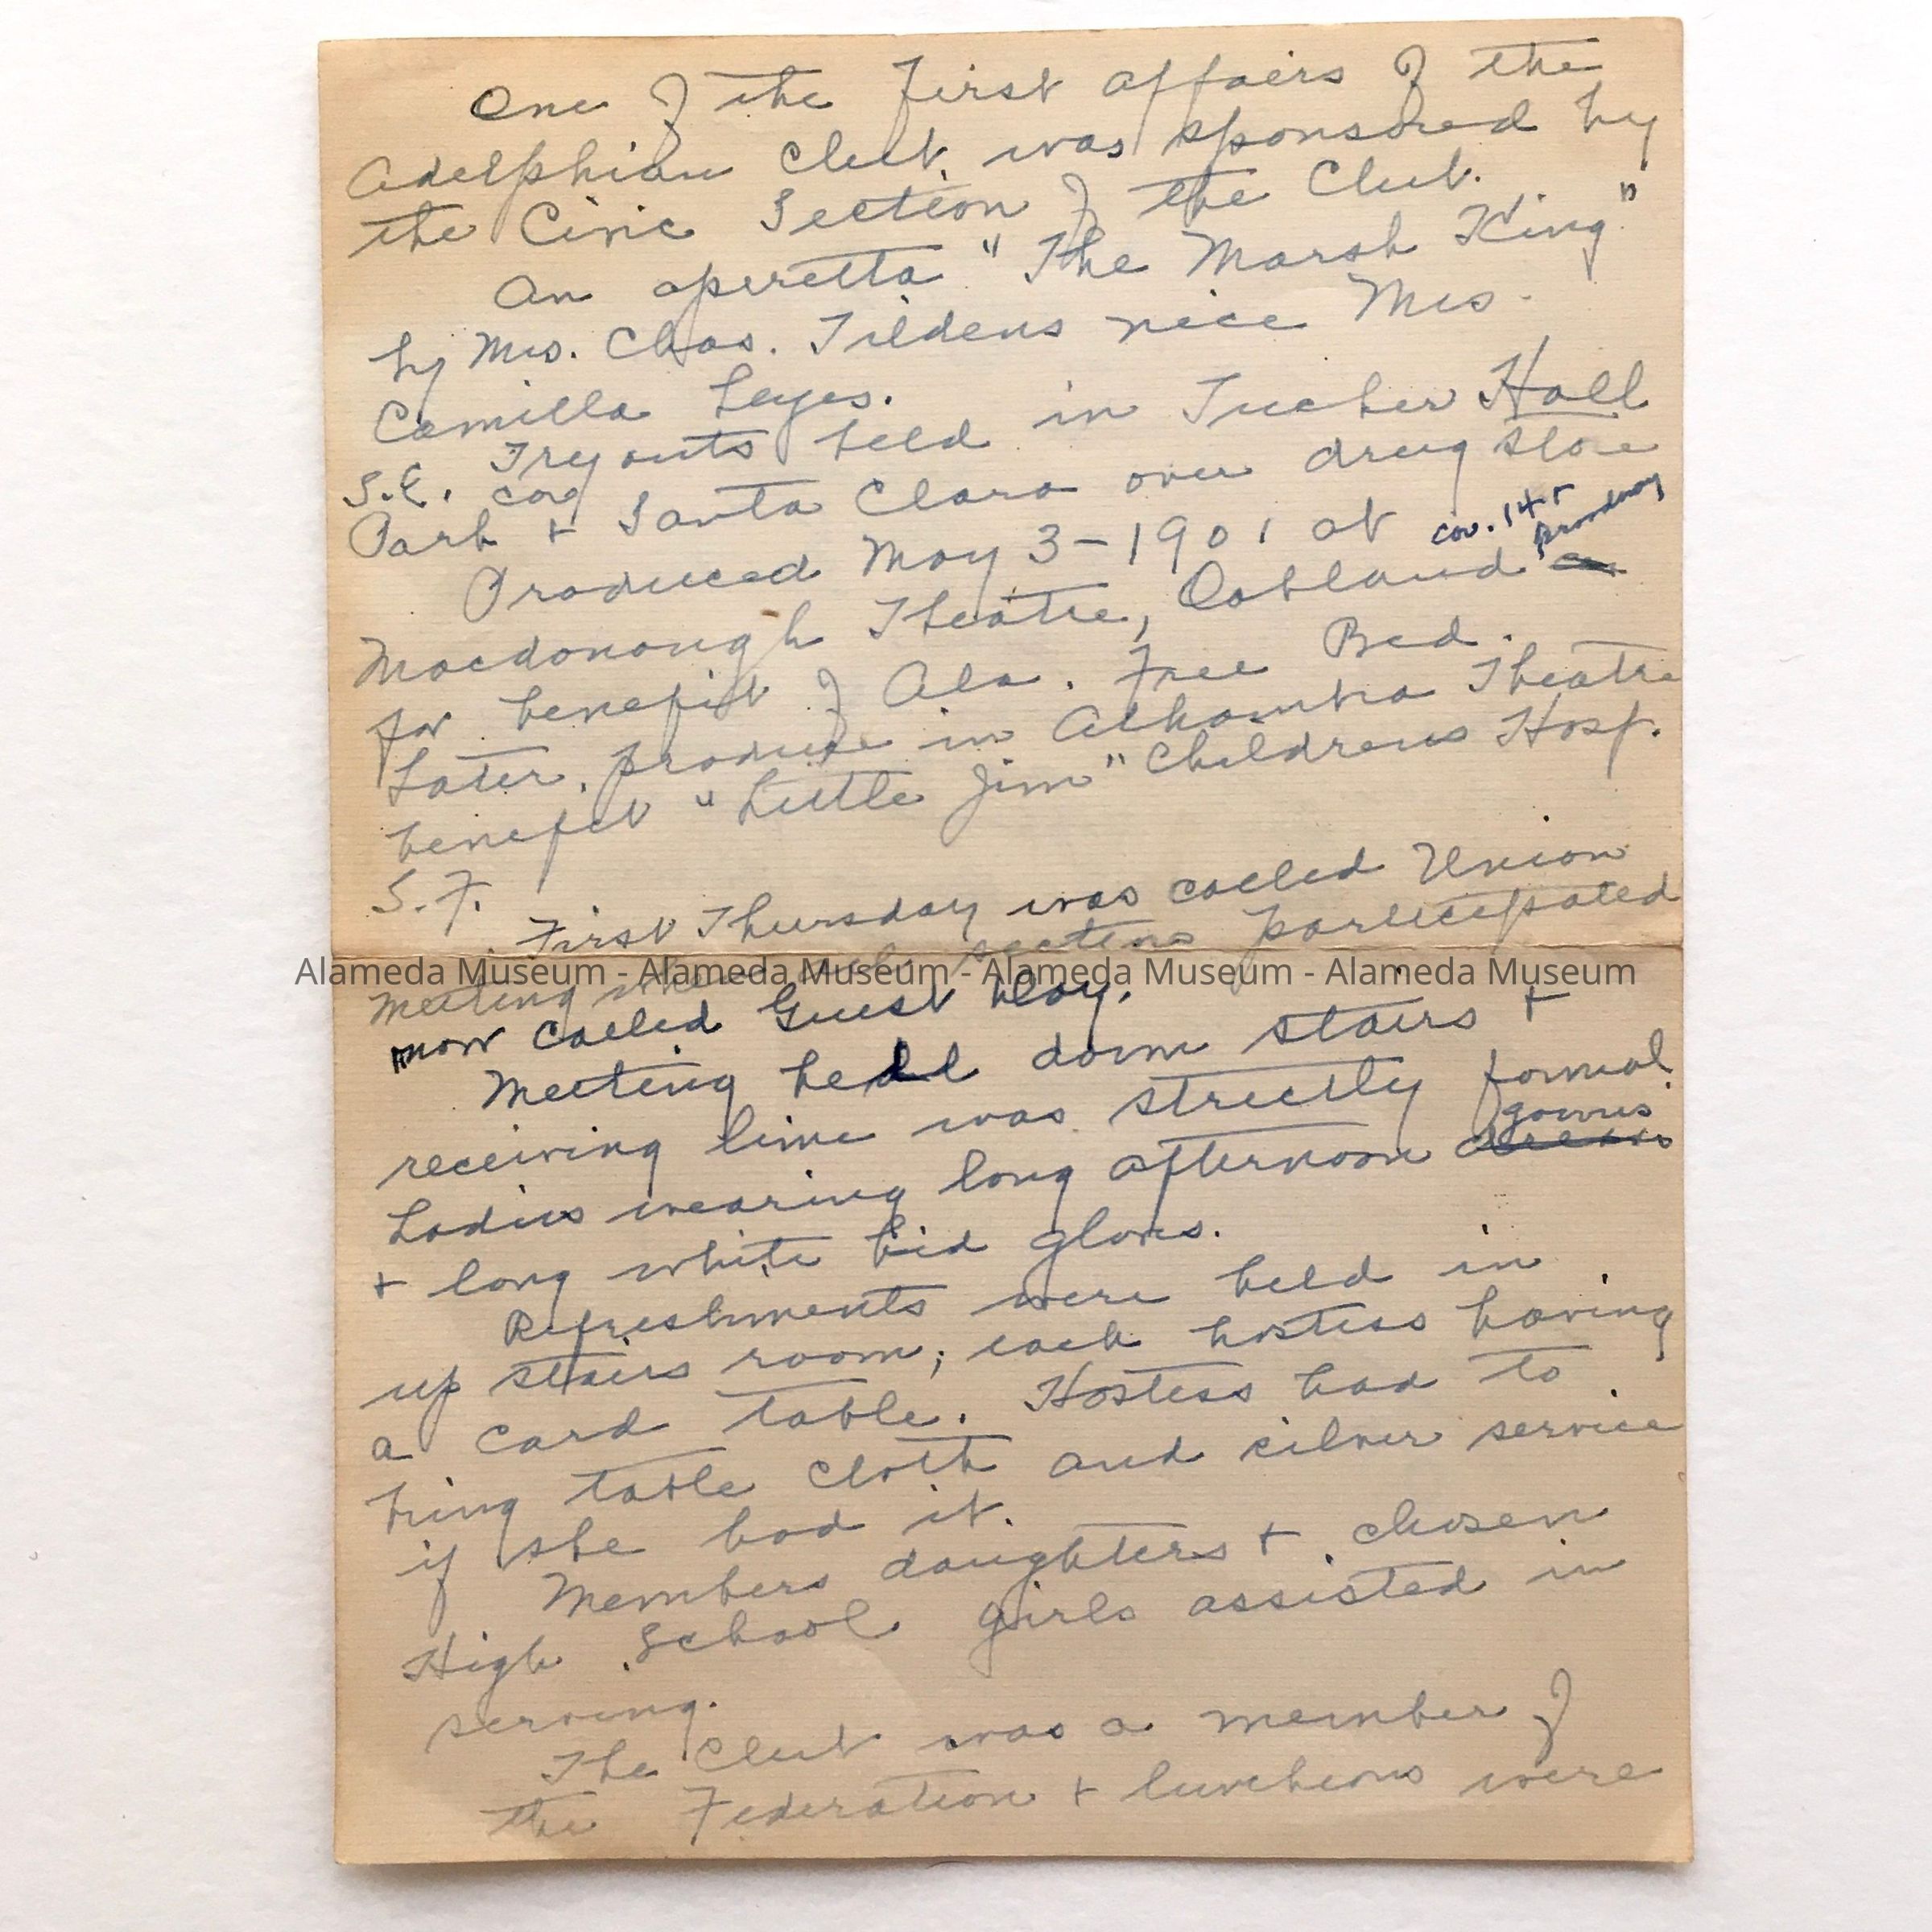 One of the first affairs of the
Adelphian Club, was sponsored by
the Civic Section of the Club.
An operetta "The Marsh King"
by Mrs. Chas. Tildens niece Mrs.
Camilla
Tryouts held in Tucker Hall
S.E. cor
Park + Santa Clara over drug store
Produced May 3-1901 at cor. 14th Broadway
Macdonough Theatre, Oakland
for benefit of Ala. Free Bed.
Later, produce in Alhambra Theatre
benefit "Little Jim" Childrens Hosp.
S.F.
First Thursday was called Union
meeting when sections participated
Alameda Museum - Alameda Museum - Alameda Museum - Alameda Museum
now called Guest Day.
Meeting held down stairs +
receiving line was strictly formal.
Ladies wearing long afternoon gowns
+ long white kid gloves.
Refreshments were held in
up stairs room; each hostess having
a card table. Hostess had to
bring table cloth and silver service
if she had it.
Members daughters + chosen
High School girls assisted in
serving.
The Club was a member of
the Federation + luncheons were